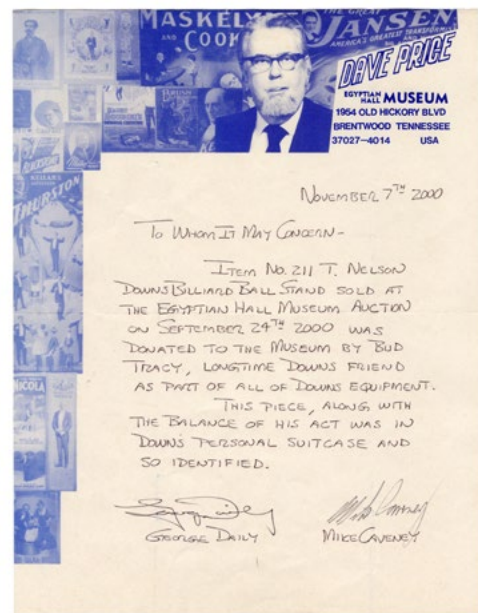 MASKELYNE
AND COOKE
THE GREAT
JANSEN
AMERICA'S GREATEST TRANSFORMIST
DAVE PRICE
EGYPTIAN
HALL MUSEUM
1954 OLD HICKORY BLVD
BRENTWOOD TENNESSEE
37027-4014 USA
KELLAR'S
THURSTON
NICOLA
NOVEMBER 7TH 2000
TO WHOM IT MAY CONCERN-
ITEM NO. 211 T. NELSON
DOWNS BILLIARD BALL STAND SOLD AT
THE EGYPTIAN HALL MUSEUM AUCTION
ON SEPTEMBER 24TH 2000 WAS
DONATED TO THE MUSEUM BY BUD
TRACY, LONGTIME DOWNS FRIEND
AS PART OF ALL OF DOWNS EQUIPMENT.
THIS PIECE, ALONG WITH
THE BALANCE OF HIS ACT WAS IN
DOWNS PERSONAL SUITCASE AND
SO IDENTIFIED.
George Daily
Mike Caveney
GEORGE DAILY
MIKE CAVENEY